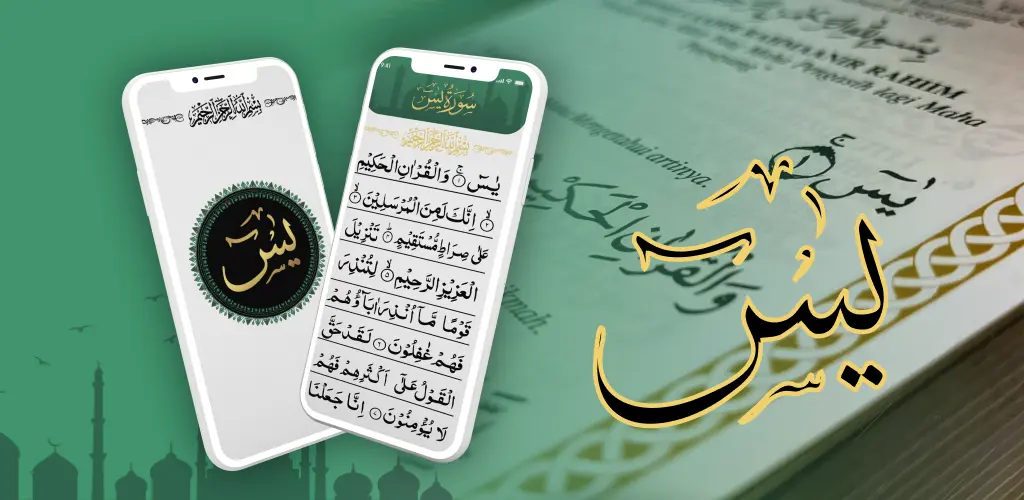 بِسْمِ اللهِ الرَّحْمٰنِ الرَّحِيْمِ
يٰسٓ
9:41
سُوْرَةُ يٰسٓ
بِسْمِ اللهِ الرَّحْمٰنِ الرَّحِيْمِ
يٰسٓ ۚ ۝١ وَالْقُرْاٰنِ الْحَكِيْمِ
ۙ ۝٢ اِنَّكَ لَمِنَ الْمُرْسَلِيْنَ ۙ ۝٣
عَلٰى صِرَاطٍ مُّسْتَقِيْمٍ ؕ ۝٤ تَنْزِيْلَ
الْعَزِيْزِ الرَّحِيْمِ ۙ ۝٥ لِتُنْذِرَ
قَوْمًا مَّاۤ اُنْذِرَ اٰبَآؤُهُمْ
فَهُمْ غٰفِلُوْنَ ۝٦ لَقَدْ حَقَّ
الْقَوْلُ عَلٰٓى اَكْثَرِهِمْ فَهُمْ
لَا يُؤْمِنُوْنَ ۝٧ اِنَّا جَعَلْنَا
RAHMANIR RAHIIM
Maha Pengasih lagi Maha
Penyayang"
يٰسٓ ۚ ۝١
Mengetahui artinya.
وَالْقُرْاٰنِ الْحَكِيْمِ
يٰسٓ